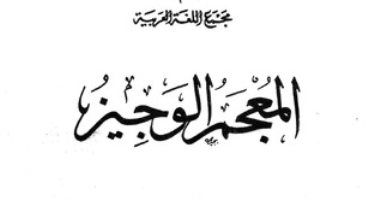 مجمع اللغة العربية
المعجم الوجيز